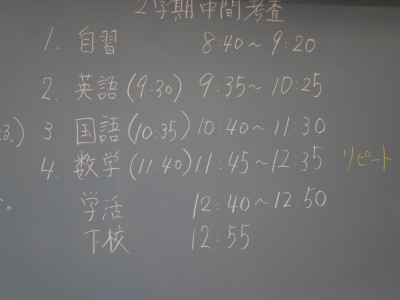 2学期中間考査
1. 自習 8:40～9:20
2. 英語(9:30) 9:35～10:25
3. 国語(10:35) 10:40～11:30
4. 数学(11:40) 11:45～12:35 リピート
学活 12:40～12:50
下校 12:55